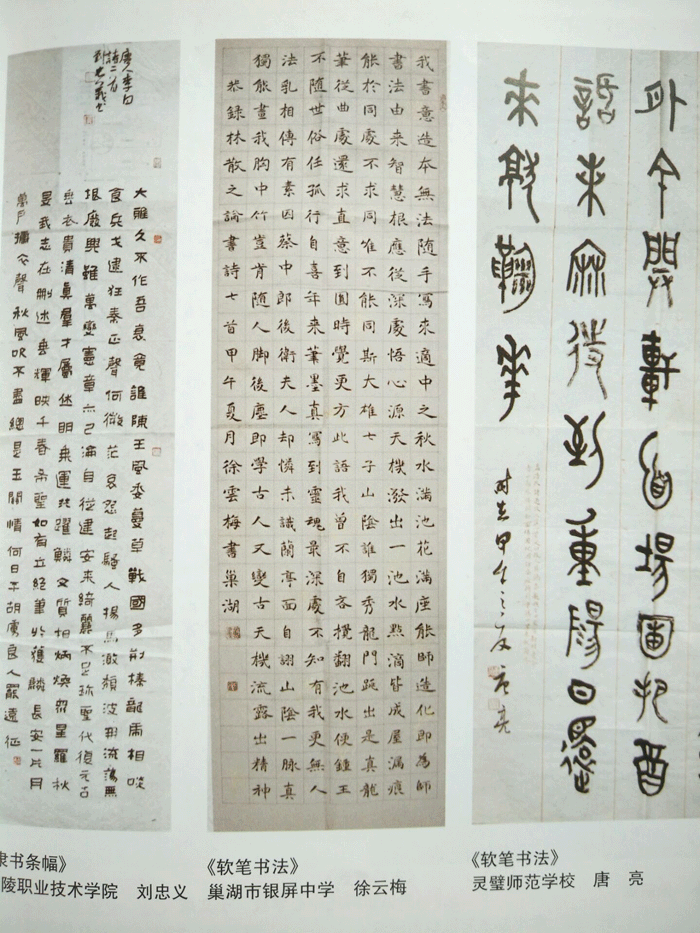 大雅久不作吾衰竟誰陳王風委蔓草戰國多荊榛龍虎相啖
食兵戈逮狂秦正聲何微茫哀怨起騷人揚馬激頹波開流蕩無
垠廢興雖萬變憲章亦已淪自從建安來綺麗不足珍聖代復元古
垂衣貴清真羣才屬休明乘運共躍鱗文質相炳煥眾星羅秋
旻我志在刪述垂輝映千春希聖如有立絕筆於獲麟長安一片月
萬戶擣衣聲秋風吹不盡總是玉關情何日平胡虜良人罷遠征
唐人李白
詩二首
劉忠義書
我書意造本無法随手寫來適中之秋水滿池花滿座能師造化即為師
書法由來智慧根應從深處悟心源天機潑出一池水點滴皆成屋漏痕
能於同處不求同唯不能同斯大雄七子山陰誰獨秀龍門跳出是真龍
筆從曲處還求直意到圓時覺更方此語我曾不自吝攪翻池水便鍾王
不隨世俗任孤行自喜年來筆墨真寫到靈魂最深處不知有我更無人
法乳相傳有素因蔡中郎後衛夫人却憐未識蘭亭面自詡山陰一脈真
獨能畫我胸中竹豈肯随人脚後塵即學古人又變古天機流露出精神
恭録林散之論書詩七首甲午夏月徐雲梅書巢湖
外開軒面場圃把酉
話來麻待到重陽日還
來就鞠華
時在甲午之夏唐亮
隶书条幅》
陵职业技术学院 刘忠义
《软笔书法》
巢湖市银屏中学 徐云梅
《软笔书法》
灵璧师范学校 唐 亮